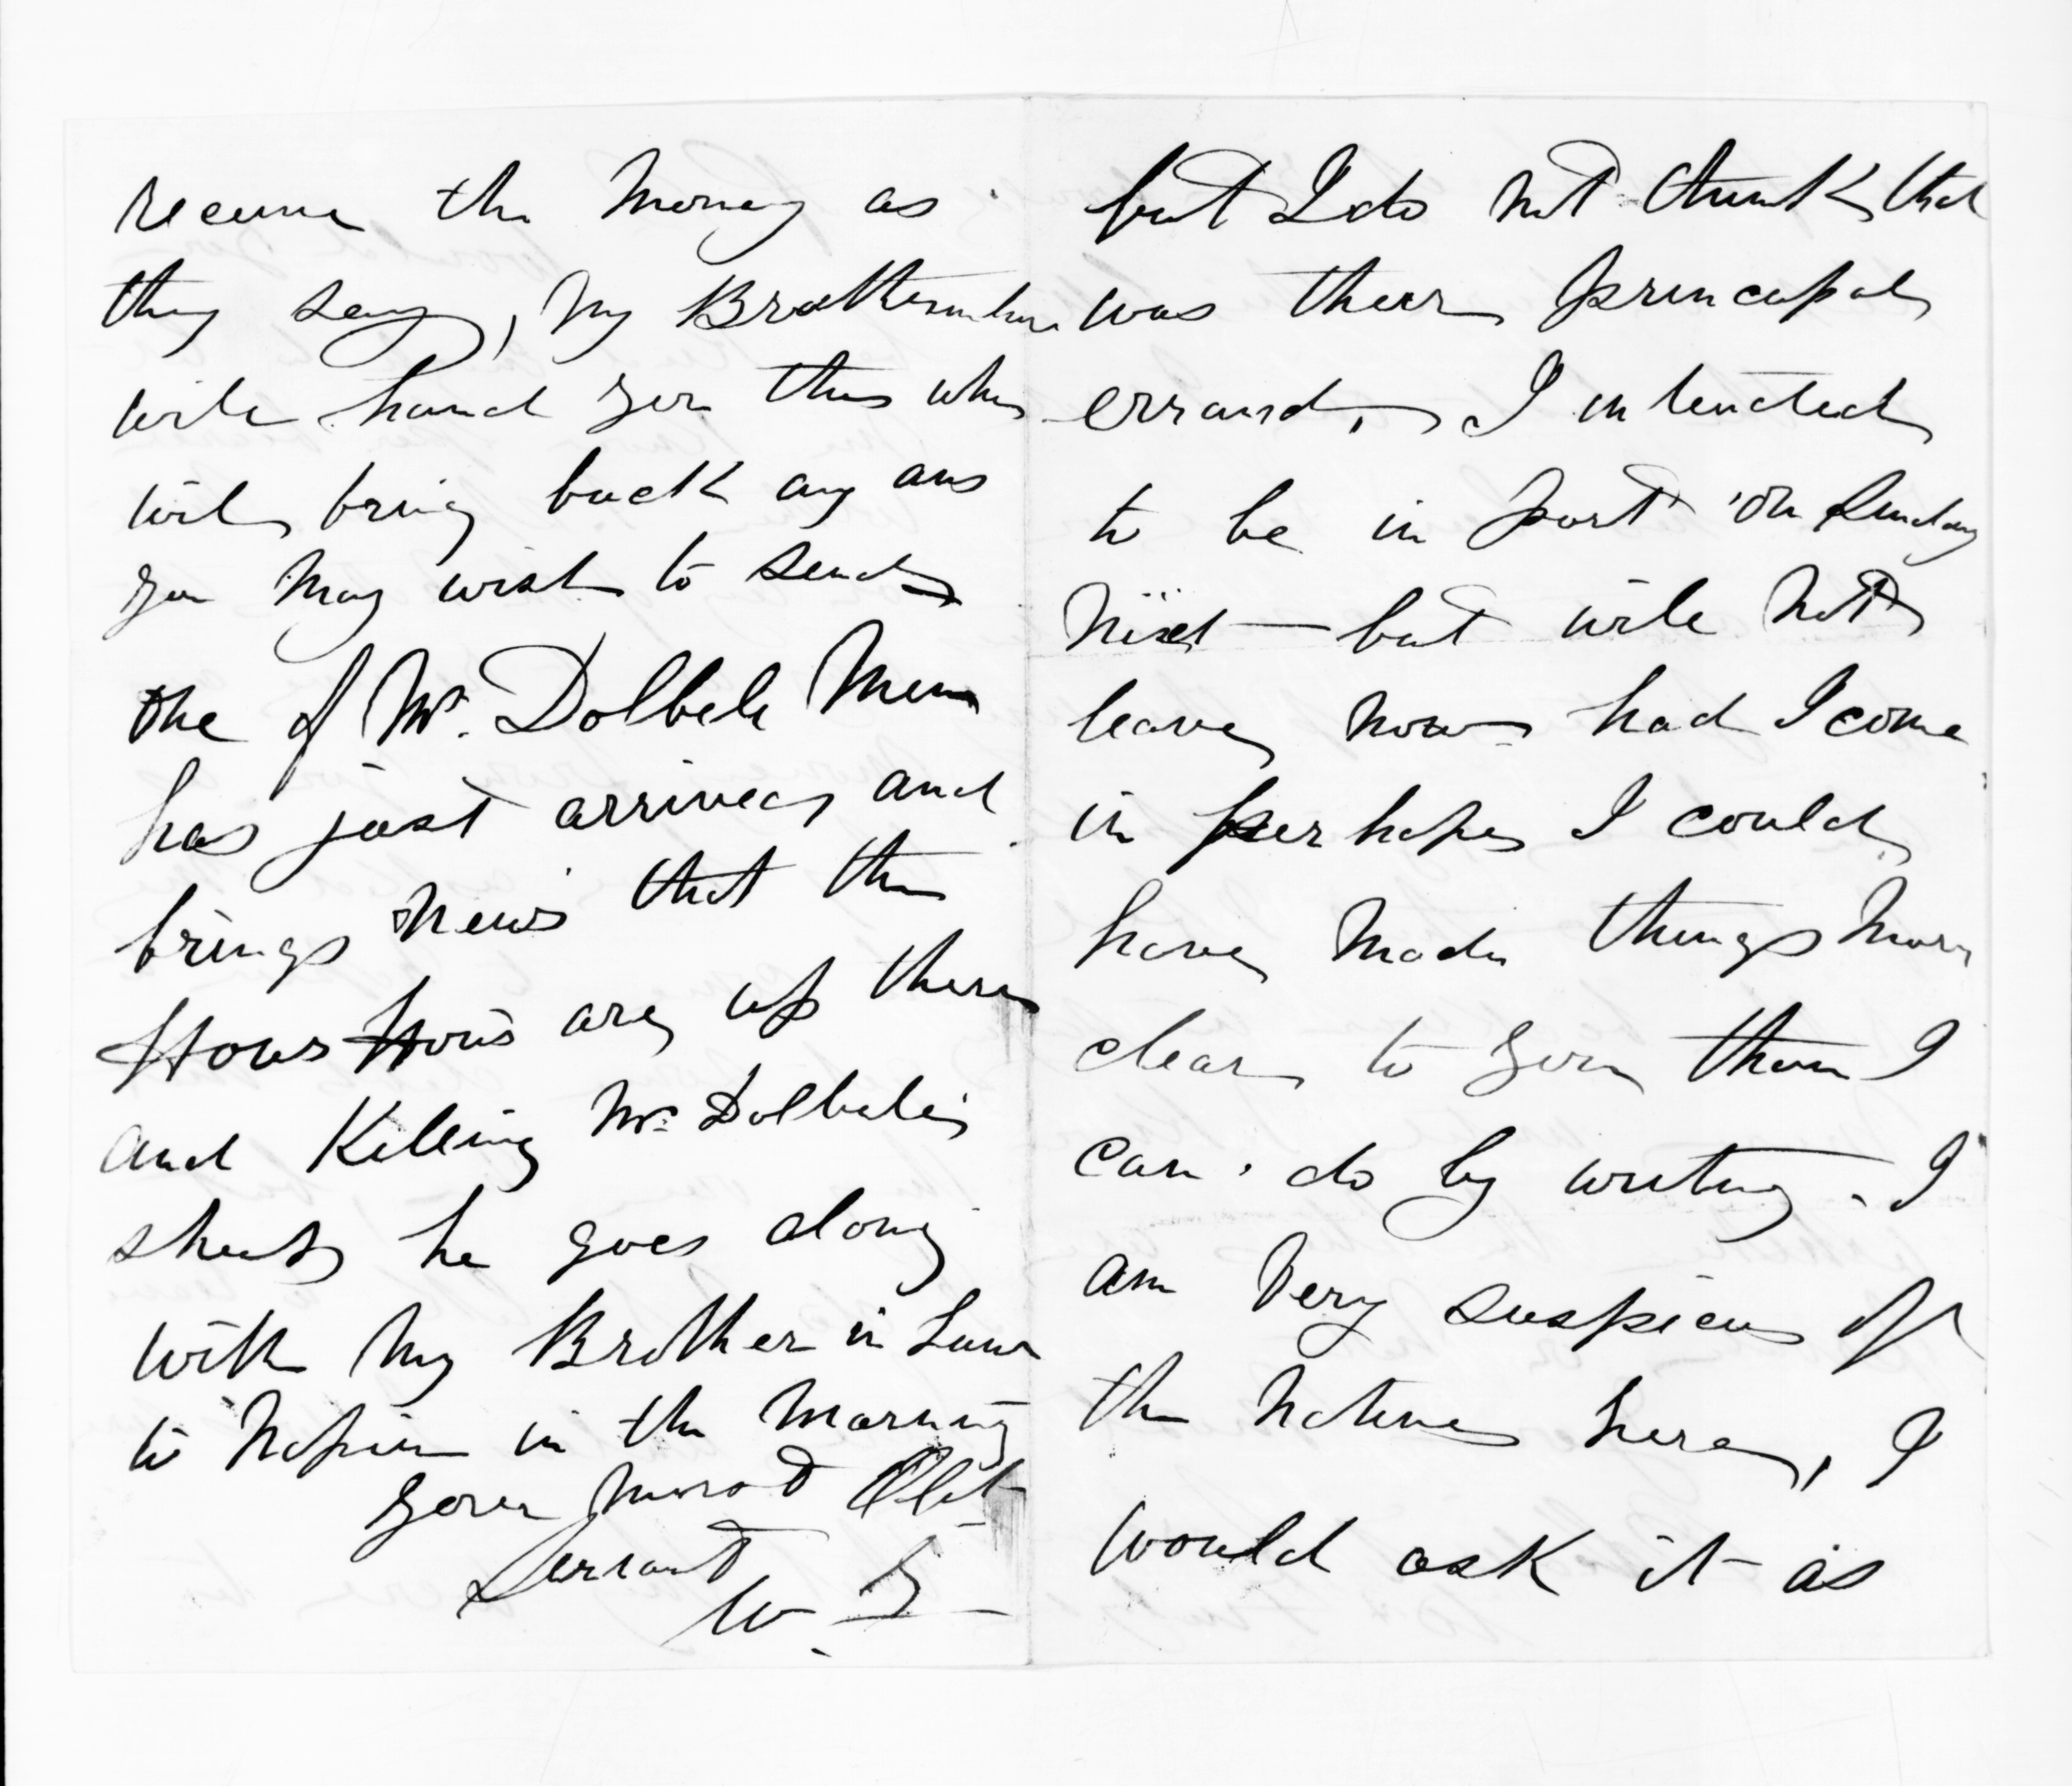 receive the money as
they say, my Brotherinlaw
will hand you this who
will bring back any ans
you may wish to send
One of Mr. Dolbels Men
has just arrived and
brings news that the
How Hows are up there
and Killing Mr Dolbels
sheep he goes along
with my Brother in Law
to Napier in the Morning
Your most Obt
Servant
W.
but I do not think that
was their principal
errand, I intended
to be in port on Sunday
Next — but will not
leave now had I come
in perhaps I could
have made things more
clear to you than I
can do by writing. I
am very suspicious of
the natives here, I
would ask it as